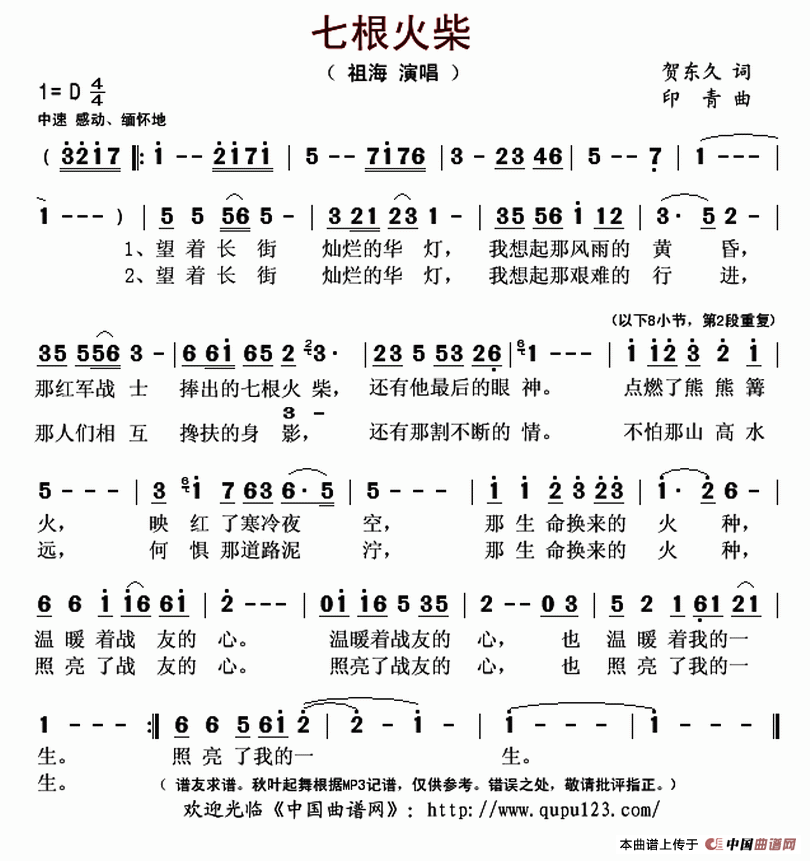 七根火柴
（ 祖海 演唱 ）
贺东久 词
1= D 4/4
印 青 曲
中速 感动、缅怀地
( 3217 ‖: 1 - - 2171 | 5 - - 7176 | 3 - 23 46 | 5 - - 7 | 1 - - - |
1 - - - ) | 5 5 56 5 - | 3 21 23 1 - | 35 56 1 12 | 3· 5 2 - |
1、望 着 长 街 灿烂的华 灯， 我想起那风雨的 黄 昏，
2、望 着 长 街 灿烂的华 灯， 我想起那艰难的 行 进，
（以下8小节，第2段重复）
35 556 3 - | 6 61 65 2 23· | 23 5 53 26 | 61 - - - | 1 12 3 2 1 |
那红军战 士 捧出的七根火 柴， 还有他最后的眼 神。 点燃了熊 熊 篝
3 -
那人们相 互 搀扶的身 影， 还有那割不断的 情。 不怕那山 高 水
5 - - - | 3 61 7 63 6·5 | 5 - - - | 1 1 2 3 23 | 1· 2 6 - |
火， 映 红 了寒冷夜 空， 那 生 命换来的 火 种，
远， 何 惧 那道路泥 泞， 那 生 命换来的 火 种，
6 6 1 16 61 | 2 - - - | 01 16 5 35 | 2 - - 0 3 | 5 2 1 61 21 |
温 暖 着战 友的 心。 温暖着战友的 心， 也 温 暖 着我的一
照 亮 了战 友的 心。 照亮了战友的 心， 也 照 亮 了我的一
1 - - - :‖ 6 6 5 61 2 | 2 - 1 - | 1 - - - | 1 - - - ‖
生。 照 亮 了我的一 生。
生。 （ 谱友求谱。秋叶起舞根据MP3记谱，仅供参考。错误之处，敬请批评指正。）
欢迎光临《中国曲谱网》：http://www.qupu123.com/
本曲谱上传于 中国曲谱网